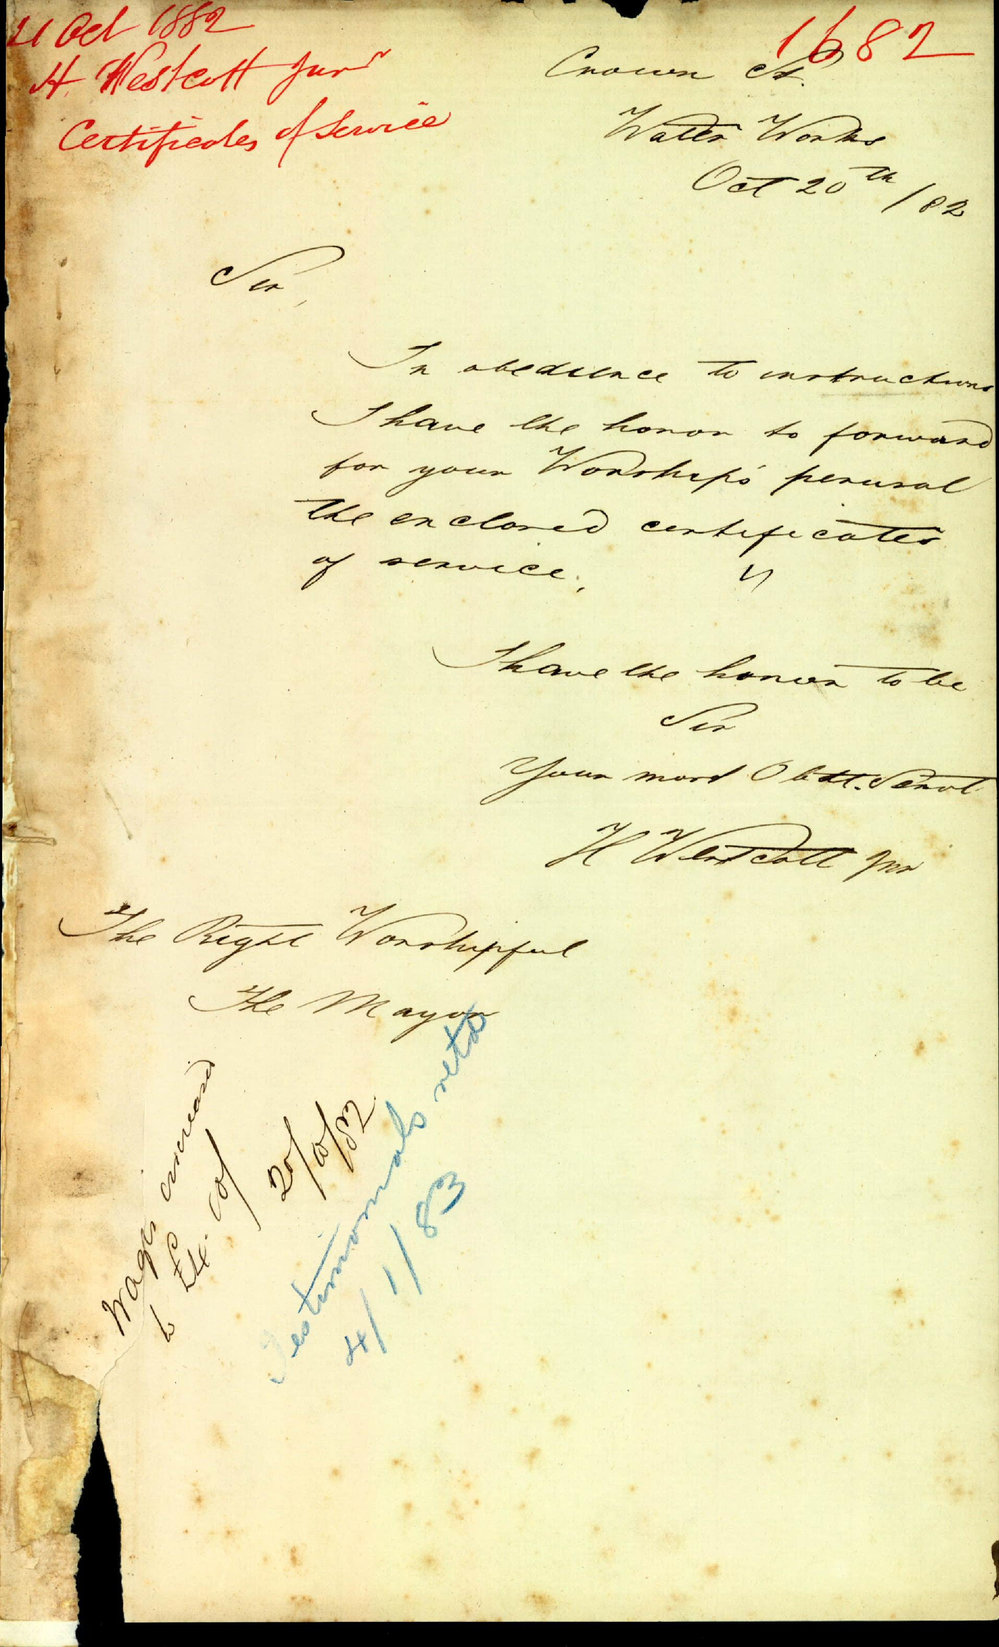 21 Oct 1882
H. Westcott Junr
Certificates of Service
1682
Crown St.
Water Works
Oct 20th /82
Sir,
In obedience to instructions
I have the honor to forward
for your Worship's perusal
the enclosed certificates
of service.
I have the honor to be
Sir
Your most Obdt. Servt
H Westcott Jnr
The Right Worshipful
The Mayor
Wages increased
to £4. 10/
20/10/82
Testimonials retd
4/1/83